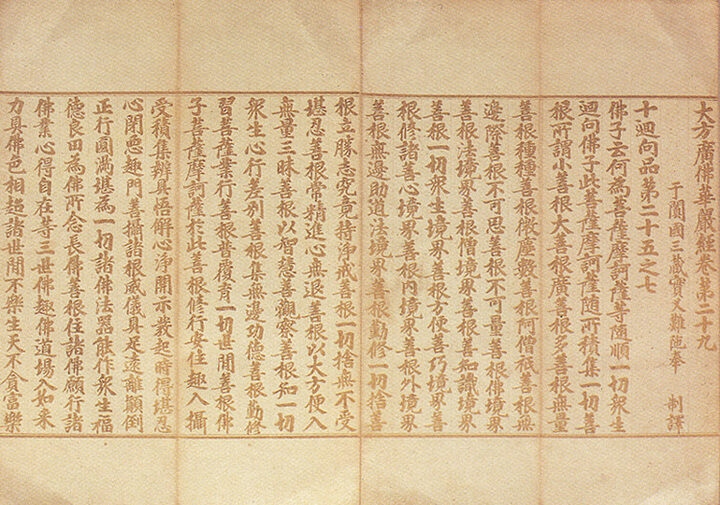 大方廣佛華嚴經卷第二十九
于闐國三藏實叉難陁奉 制譯
十迴向品第二十五之七
佛子云何為菩薩摩訶薩等隨順一切衆生
迴向佛子此菩薩摩訶薩隨所積集一切善
根所謂小善根大善根廣善根多善根無量
善根種種善根微塵數善根阿僧祇善根無
邊際善根不可思善根不可量善根佛境界
善根法境界善根僧境界善根善知識境界
善根一切衆生境界善根方便善巧境界善
根修諸善心境界善根内境界善根外境界
善根無邊助道法境界善根勤修一切捨善
根立勝志究竟持淨戒善根一切捨無不受
堪忍善根常精進心無退善根以大方便入
無量三昧善根以智慧善觀察善根知一切
衆生心行差别善根集無邊功德善根勤修
習菩薩業行善根普覆育一切世間善根佛
子菩薩摩訶薩於此善根修行安住趣入攝
受積集辦具悟解心淨開示發起時得堪忍
心閉悪趣門善攝諸根威儀具足遠離顛倒
正行圓滿堪為一切諸佛法器能作衆生福
德良田為佛所念長佛善根住諸佛願行諸
佛業心得自在等三世佛趣佛道場入如来
力具佛色相超諸世間不樂生天不貪富樂